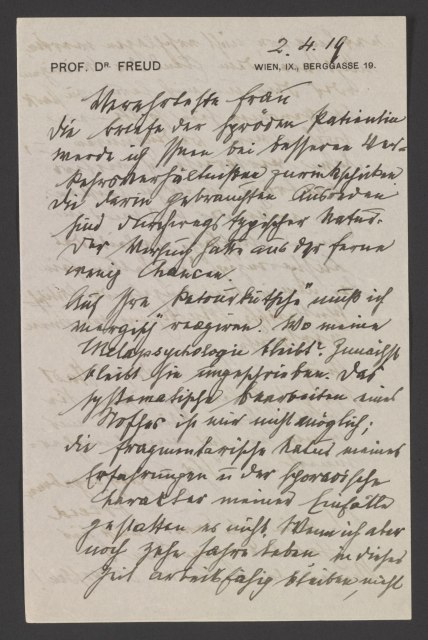 2.4.19
PROF. DR. FREUD WIEN, IX., BERGGASSE 19.
Verehrteste Frau
Die Briefe der spröden Patientin
werde ich Ihnen bei besseren Ver-
kehrsverhältnißen zurückschicken
Die darin gebrauchten Ausreden
sind durchwegs typischer Natur.
Der Versuch hatte aus der Ferne
wenig Chancen.
Auf Ihre „Retourkutsche“ muß ich
reagiren. Wo meine
Metapsychologie bleibt? Zunächst
bleibt sie ungeschrieben. Das
systematische Bearbeiten eines
Stoffes ist mir nicht möglich;
die fragmentarische Natur meiner
Erfahrungen u der sporadische
Charakter meiner Einfälle
gestatten es nicht. Wenn ich aber
noch zehn Jahre leben, in dieser
Zeit arbeitsfähig bleiben, nicht